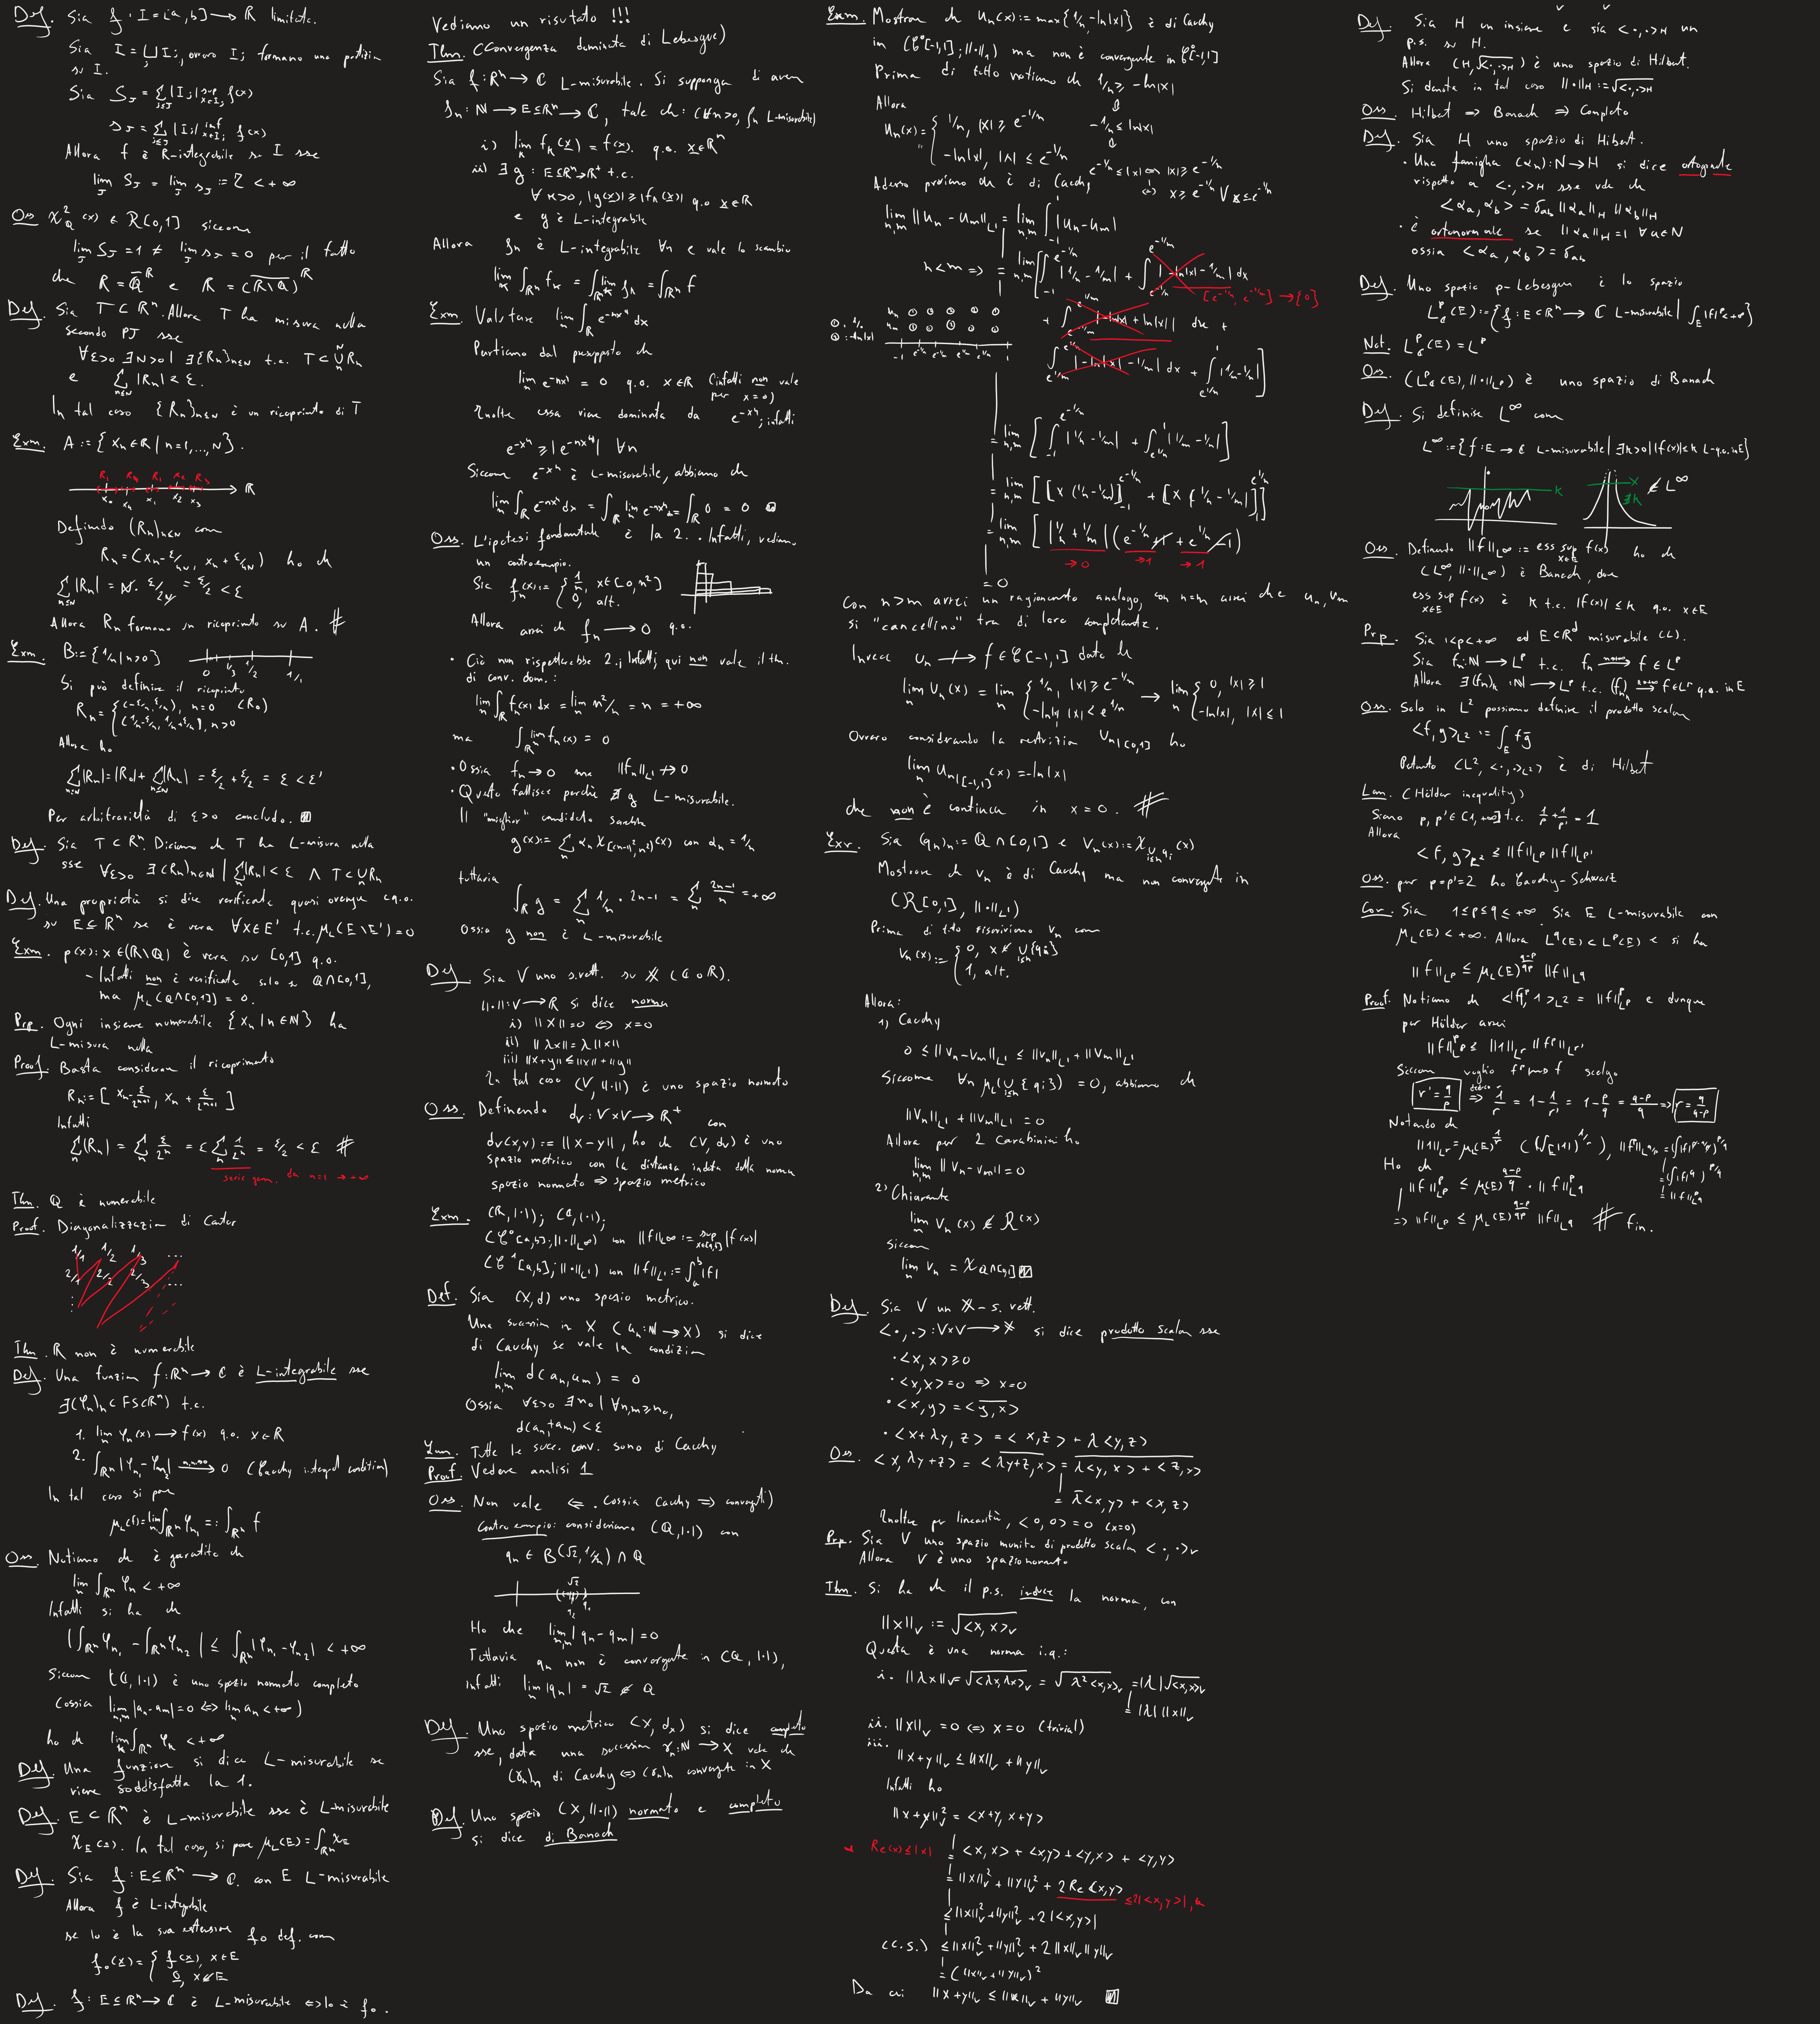 Def. Sia f : I = [a,b] → R limitata.
Sia I = ⊔ Ij, ovvero Ij formano una partizion
su I.
Sia SJ = Σ_{j≤J} |Ij| sup_{x∈Ij} f(x)
sJ = Σ_{j≤J} |Ij| inf_{x∈Ij} f(x)
Allora f è R-integrabile su I sse
lim_J SJ = lim_J sJ := Z < +∞
lim_J SJ = 1 ≠ lim_J sJ = 0 per il fatto
Def. Sia T ⊂ R^n. Allora T ha misura nulla
secondo PJ sse
∀ε>0 ∃N>0 | ∃{Rn}n∈N t.c. T ⊂ ∪_n^N Rn
e Σ_{n≤N} |Rn| < ε.
In tal caso {Rn}n≤N è un ricoprimto di T
Exm. A := {xn ∈ R | n=1,...,N}.
R
Definendo (Rn)n≤N com
Rn = (xn - ε/4N, xn + ε/4N) ho ch
Σ_{n≤N} |Rn| = N · ε/2N = ε/2 < ε
Allora Rn formano un ricoprimto su A. #
Exm. B := {1/n | n>0}
0 1/3 1/2 1/1
Si può definire il ricoprimto
Allora ho
Per arbitrarietà di ε>0 concludo.
Def. Sia T ⊂ R^n. Diciamo ch T ha L-misura nulla
sse ∀ε>0 ∃(Rn)n∈N | Σ_n |Rn| < ε ∧ T ⊂ ∪_n Rn
Def. Una proprietà si dice verificata quasi ovunque (q.o.
su E ⊆ R^n se è vera ∀x∈E' t.c. μL(E\E') = 0
Exm. p(x): x ∈ (R\Q) è vera su [0,1] q.o.
- Infatti non è verificata solo su Q∩[0,1],
ma μL(Q∩[0,1]) = 0.
Prp. Ogni insieme numerabile {xn | n∈N} ha
L-misura nulla
Proof. Basta considerare il ricoprimento
Rn := [xn - ε/2^{n+1}, xn + ε/2^{n+1}]
Infatti
serie geom. da n=1 → +∞
Thm. Q è numerabile
Proof. Diagonalizzazion di Cantor
1/1 1/2 1/3 ...
2/1 2/2 2/3 ...
Thm. R non è numerabile
Def. Una funzion f: R^n → C è L-integrabile sse
∃(φn)n ⊂ FS(R^n) t.c.
1. lim_n φn(x) → f(x) q.o. x∈R
2. ∫_{R^n} |φn1 - φn2| → 0 (Cauchy integral condition)
In tal caso si pone
μL(f) = lim_n ∫_{R^n} φn =: ∫_{R^n} f
Oss. Notiamo ch è garantito ch
lim_n ∫_{R^n} φn < +∞
Infatti si ha ch
|∫_{R^n} φn1 - ∫_{R^n} φn2| ≤ ∫_{R^n} |φn1 - φn2| < +∞
Siccom (C, |·|) è uno spazio normato completo
(ossia lim_{n,m} |an - am| = 0 ⇔ lim_n an < +∞)
ho ch lim_n ∫_{R^n} φn < +∞
Def. Una funzione si dice L-misurabile se
viene soddisfatta la 1.
Def. E ⊂ R^n è L-misurabile sse è L-misurabile
χE(x). In tal caso, si pone μL(E) = ∫_{R^n} χE
Def. Sia f: E ⊆ R^n → C. con E L-misurabile
Allora f è L-integrabile
se lo è la sua estensione f0 def. com
f0(x) = { f(x), x∈E
0, x∉E
Def. f: E ⊆ R^n → C è L-misurabile ⇔ lo è f0.
Vediamo un risutato !!!
Thm. (Convergenza dominata di Lebesgue)
Sia f: R^n → C L-misurabile. Si supponga di aver
fn: N → E ⊆ R^n → C, tale ch: (∀n>0, fn L-misurabile)
i) lim_k fk(x) = f(x). q.o. x∈R^n
ii) ∃g: E⊆R^n → R^+ t.c.
∀n>0, |g(x)| ≥ |fn(x)| q.o. x∈R
e g è L-integrabile
Allora fn è L-integrabile ∀n e vale lo scambio
Exm. Valutare lim_n ∫_R e^{-nx^4} dx
Partiamo dal presupposto ch
lim_n e^{-nx^4} = 0 q.o. x∈R (infatti non vale
per x=0)
Inoltre essa viene dominata da e^{-x^4}; infatti
e^{-x^4} ≥ |e^{-nx^4}| ∀n
Siccom e^{-x^4} è L-misurabile, abbiamo ch
lim_n ∫_R e^{-nx^4} dx = ∫_R lim_n e^{-nx^4} dx = ∫_R 0 = 0
Oss. L'ipotesi fondamentale è la 2. . Infatti, vediamo
un controesempio.
Sia fn(x) := { 1/n, x∈[0,n²]
0, alt.
Allora avrei ch fn → 0 q.o.
• Ciò non rispetterebbe 2.; Infatti, qui non vale il th.
di conv. dom.:
lim_n ∫_R fn(x) dx = lim_n n²/n = n = +∞
ma ∫_R lim_n fn(x) = 0
• Ossia fn → 0 ma ||fn||L1 ↛ 0
• Questo fallisce perchè ∄g L-misurabile.
Il "miglior" candidato sarebbe
g(x) := Σ_n αn χ_{[(n-1)²,n²)}(x) con αn = 1/n
tuttavia
∫_R g = Σ_n 1/n · 2n-1 = Σ_n (2n-1)/n = +∞
Ossia g non è L-misurabile
Def. Sia V uno s.vett. su X (C o R).
||·||: V → R si dice norma
i) ||x|| = 0 ⇔ x=0
ii) ||λx|| = λ||x||
iii) ||x+y|| ≤ ||x|| + ||y||
In tal caso (V, ||·||) è uno spazio normato
Oss. Definendo dv: V×V → R^+ con
dv(x,y) := ||x-y||, ho ch (V, dv) è uno
spazio metrico con la distanza indotta dalla norma
spazio normato ⇒ spazio metrico
Exm. (R, |·|); (C, |·|);
(C^0[a,b]; ||·||L∞) con ||f||L∞ := sup_{x∈[a,b]} |f(x)|
(C^1[a,b]; ||·||L1) con ||f||L1 := ∫_a^b |f|
Def. Sia (X,d) uno spazio metrico.
Una succession in X (an: N → X) si dice
di Cauchy se vale la condizion
lim_{n,m} d(an, am) = 0
Ossia ∀ε>0 ∃n0 | ∀n,m ≥ n0,
d(an, am) < ε
Lem. Tutte le succ. conv. sono di Cauchy
Proof. Vedere analisi 1
Oss. Non vale ⇐. (ossia Cauchy ⇒ convergti)
Contro esempio: consideriamo (Q, |·|) con
qn ∈ B(√2, 1/n) ∩ Q
√2
Ho che lim_{n,m} |qn - qm| = 0
Tuttavia qn non è convergente in (Q, |·|),
infatti lim_n |qn| = √2 ∉ Q
Def. Uno spazio metrico (X, dx) si dice completo
sse, data una succession γn: N → X vale ch
(γn)n di Cauchy ⇔ (γn)n convergte in X
Def. Uno spazio (X, ||·||) normato e completo
si dice di Banach
Exm. Mostrare ch Un(x) := max{1/n, -ln|x|} è di Cauchy
in (C^0[-1,1]; ||·||1) ma non è convergente in C^0[-1,1]
Prima di tutto notiamo ch 1/n ≥ -ln|x|
⇕
-1/n ≤ ln|x|
Allora
Un(x) = { 1/n, |x| ≥ e^{-1/n}
-ln|x|, |x| ≤ e^{-1/n}
e^{-1/n} ≤ |x| ⇔ |x| ≥ e^{-1/n}
⇔ x ≥ e^{-1/n} ∨ x ≤ -e^{-1/n}
Adesso proviamo ch è di Cauchy
lim_{n,m} ||Un - Um||L1 = lim_{n,m} ∫ |Un - Um|
n<m ⇒
[e^{-1/n}, e^{-1/m}] → {0}
→0 →1 →1
= 0
Con n>m avrei un ragionamento analogo, con n=m avrei che un, um
si "cancellino" tra di loro completamte.
Invece Un ↛ f ∈ C[-1,1] dato ch
lim_n Un(x) = lim_n { 1/n, |x| ≥ e^{-1/n} → lim_n { 0, |x| ≥ 1
-ln|x|, |x| < e^{1/n} -ln|x|, |x| ≤ 1
Ovvero considerando la restrizion Un|[0,1] ho
lim_n Un|[-1,1](x) = -ln|x|
che non è continua in x=0. #
Exr. Sia (qn)n := Q∩[0,1] e Vn(x) := χ_{∪_{i≤n} qi}(x)
Mostrare ch vn è di Cauchy ma non convergte in
(R[0,1], ||·||L1)
Prima di tutto riscriviamo vn com
Vn(x) := { 0, x ∉ ∪_{i≤n} {qi}
1, alt.
Allora:
1) Cauchy
0 ≤ ||Vn - Vm||L1 ≤ ||Vn||L1 + ||Vm||L1
Siccome ∀n μL(∪_{i≤n} {qi}) = 0, abbiamo ch
||Vn||L1 + ||Vm||L1 = 0
Allora per 2 Carabinieri ho
lim_{n,m} ||Vn - Vm|| = 0
2) Chiaramte
lim_n Vn(x) ∉ R(x)
siccom
lim_n Vn = χ_{Q∩[0,1]}
Def. Sia V un X-s. vett.
<·,·>: V×V → X si dice prodotto scalare sse
• <x,x> ≥ 0
• <x,x> = 0 ⇒ x=0
• <x,y> = \overline{<y,x>}
• <x+λy, z> = <x,z> + λ<y,z>
Oss. <x, λy+z> = \overline{<λy+z, x>} = \overline{λ<y,x> + <z,x>}
= \overline{λ}<x,y> + <x,z>
Inoltre per linearità, <0,0> = 0 (x=0)
Prp. Sia V uno spazio munito di prodotto scalar <·,·>v
Allora V è uno spazio normato
Thm. Si ha ch il p.s. induce la norma, con
||x||v := √<x,x>v
Questa è una norma i.q.:
i. ||λx||v = √<λx,λx>v = √λ²<x,x>v = |λ|√<x,x>v
= |λ| ||x||v
ii. ||x||v = 0 ⇔ x=0 (trivial)
iii. ||x+y||v ≤ ||x||v + ||y||v
Infatti ho
||x+y||²v = <x+y, x+y>
* Re(x) ≤ |x| = <x,x> + <x,y> + <y,x> + <y,y>
= ||x||²v + ||y||²v + 2Re<x,y> ≤ 2|<x,y>|, *
≤ ||x||²v + ||y||²v + 2|<x,y>|
(C.S.) ≤ ||x||²v + ||y||²v + 2||x||v||y||v
= (||x||v + ||y||v)²
Da cui ||x+y||v ≤ ||x||v + ||y||v
Def. Sia H un insieme e sia <·,·>H un
p.s. su H.
Allora (H, √<·,·>H) è uno spazio di Hilbert.
Si denota in tal caso ||·||H := √<·,·>H
Oss. Hilbert ⇒ Banach ⇒ Completo
Def. Sia H uno spazio di Hibert.
• Una famiglia (αn): N → H si dice ortogonale
rispetto a <·,·>H sse vale ch
<αa, αb> = δab ||αa||H ||αb||H
• è ortonormale se ||αa||H = 1 ∀a∈N
ossia <αa, αb> = δab
Def. Uno spazio p-Lebesgue è lo spazio
Not.
Oss. è uno spazio di Banach
Def. Si definise L∞ com
L∞ := {f: E → C L-misurabile | ∃k>0 | |f(x)| ≤ k L-q.o. in E}
k
∄k ∉ L∞
Oss. Definendo ||f||L∞ := ess sup_{x∈E} f(x) ho ch
(L∞, ||·||L∞) è Banach, dove
ess sup_{x∈E} f(x) è K t.c. |f(x)| ≤ K q.o. x∈E
Prp. Sia 1<p<+∞ ed E⊂R^d misurabile (L).
Sia fn: N → L^p t.c. fn → f ∈ L^p
Oss. Solo in L² possiamo definire il prodotto scalare
<f,g>L² := ∫_E f\overline{g}
Pertanto (L², <·,·>L²) è di Hilbert
Lem. (Hölder inequality)
Siano p, p' ∈ [1,+∞] t.c. 1/p + 1/p' = 1
Allora
<f,g>L² ≤ ||f||Lp ||f||Lp'
Oss. per p=p'=2 ho Cauchy-Schwart
Cor. Sia 1≤p≤q≤+∞. Sia E L-misurabile con
μL(E) < +∞. Allora L^q(E) ⊂ L^p(E) e si ha
||f||Lp ≤ μL(E)^{(q-p)/qp} ||f||Lq
Proof. Notiamo ch <|f|^p, 1>L² = ||f||^p Lp e dunque
per Hölder avrei
Siccom voglio scelgo
r' = q/p ⇒ 1/r = 1 - 1/r' = 1 - p/q = (q-p)/q ⇒ r = q/(q-p)
Notando ch
Ho ch
||f||^p Lp ≤ μL(E)^{(q-p)/q} · ||f||^p Lq
⇒ ||f||Lp ≤ μL(E)^{(q-p)/qp} ||f||Lq # fin.